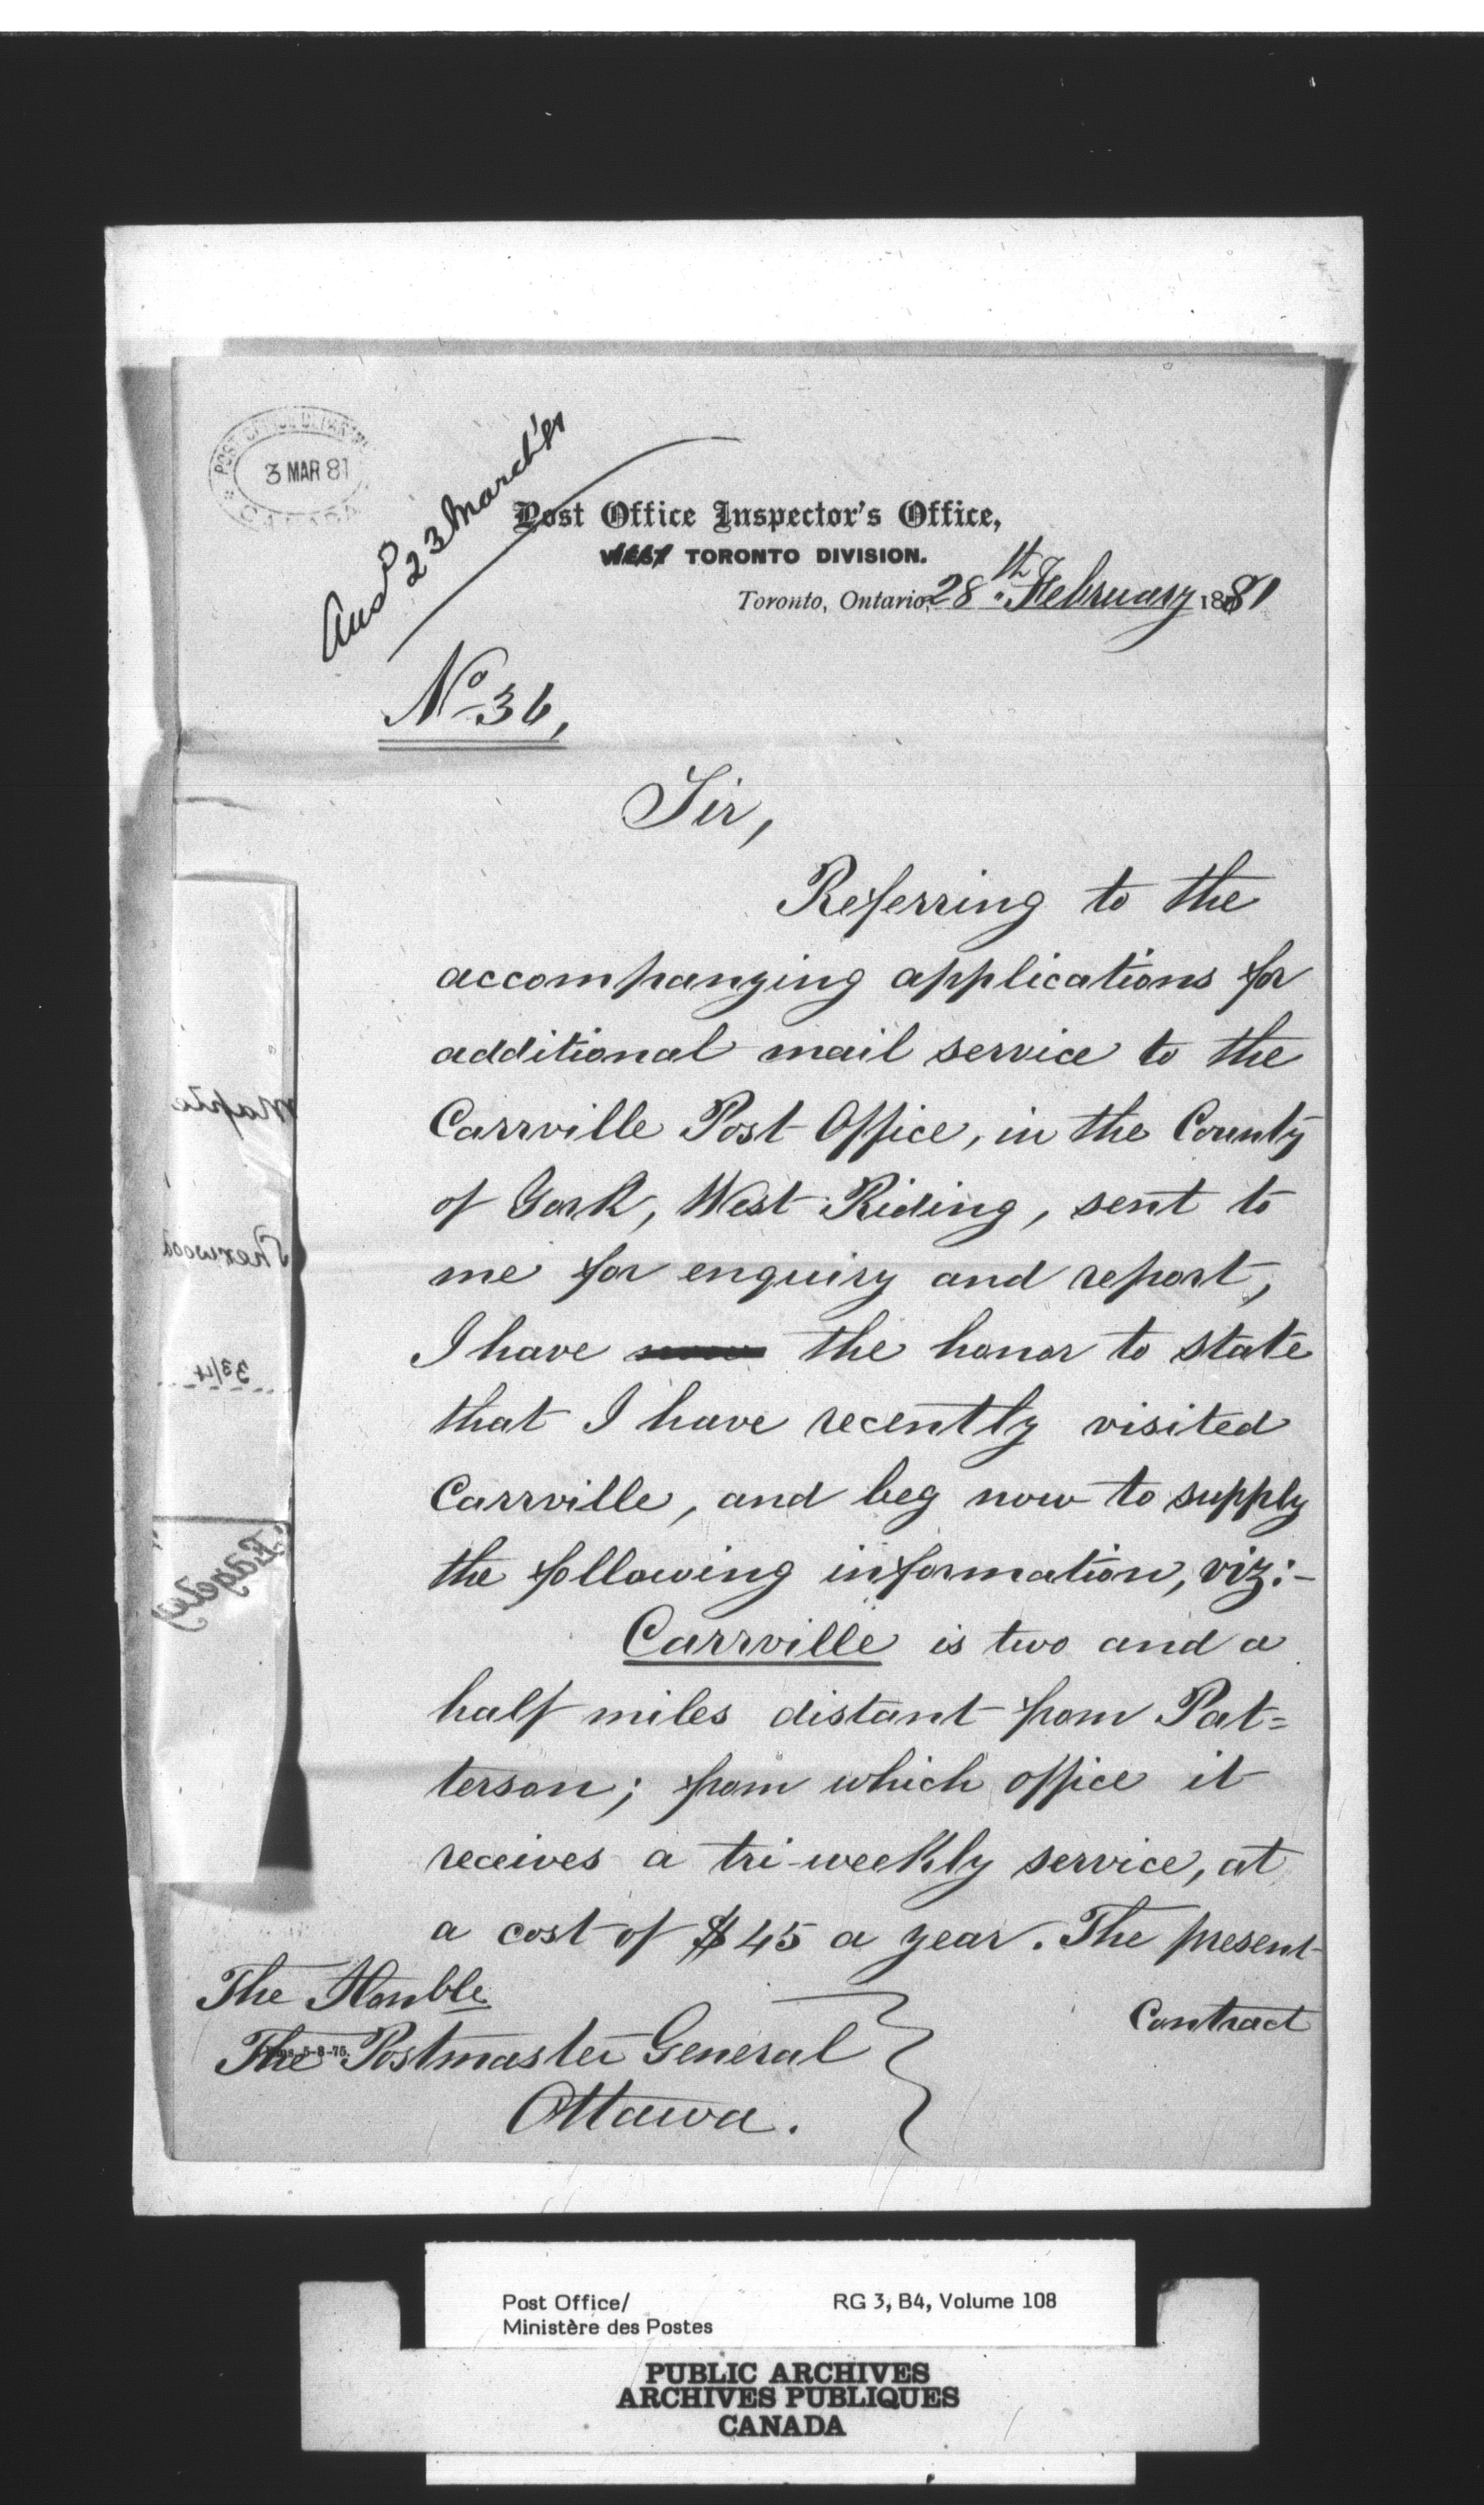 POST OFFICE DEPARTMENT
3 MAR 81
CANADA
Ansd 23 March '81
Post Office Inspector's Office,
WEST TORONTO DIVISION.
Toronto, Ontario, 28th February 1881
No 36,
Sir,
Referring to the
accompanying applications for
additional mail service to the
Carrville Post Office, in the County
of York, West Riding, sent to
me for enquiry and report,
I have the honor to state
that I have recently visited
Carrville, and beg now to supply
the following information, viz:-
Carrville is two and a
half miles distant from Pat=
terson; from which office it
receives a tri-weekly service, at
a cost of $45 a year. The present
Contract
The Honble
The Postmaster General
Ottawa.
5-8-75.
Maple
Sherwood
3 3/4
Edgeley
Post Office/
Ministère des Postes
RG 3, B4, Volume 108
PUBLIC ARCHIVES
ARCHIVES PUBLIQUES
CANADA